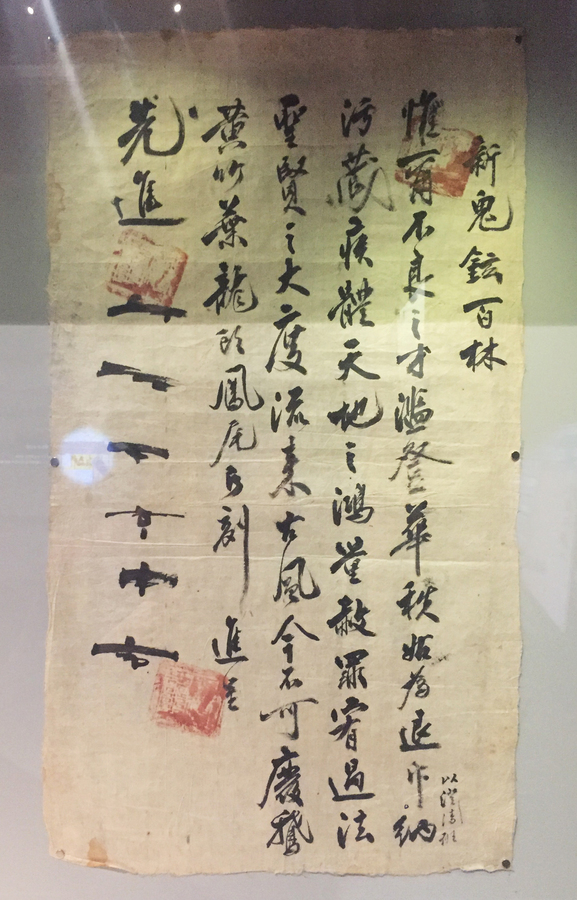 新鬼鉉百林
惟爾不良之才濫登華秩姑爲退斥納
以澄清班
汚藏疾體天地之鴻量赦罪宥過法
聖賢之大度流來古風今不可廢鵝
黃竹葉龍頭鳳尾即刻 進呈
先進